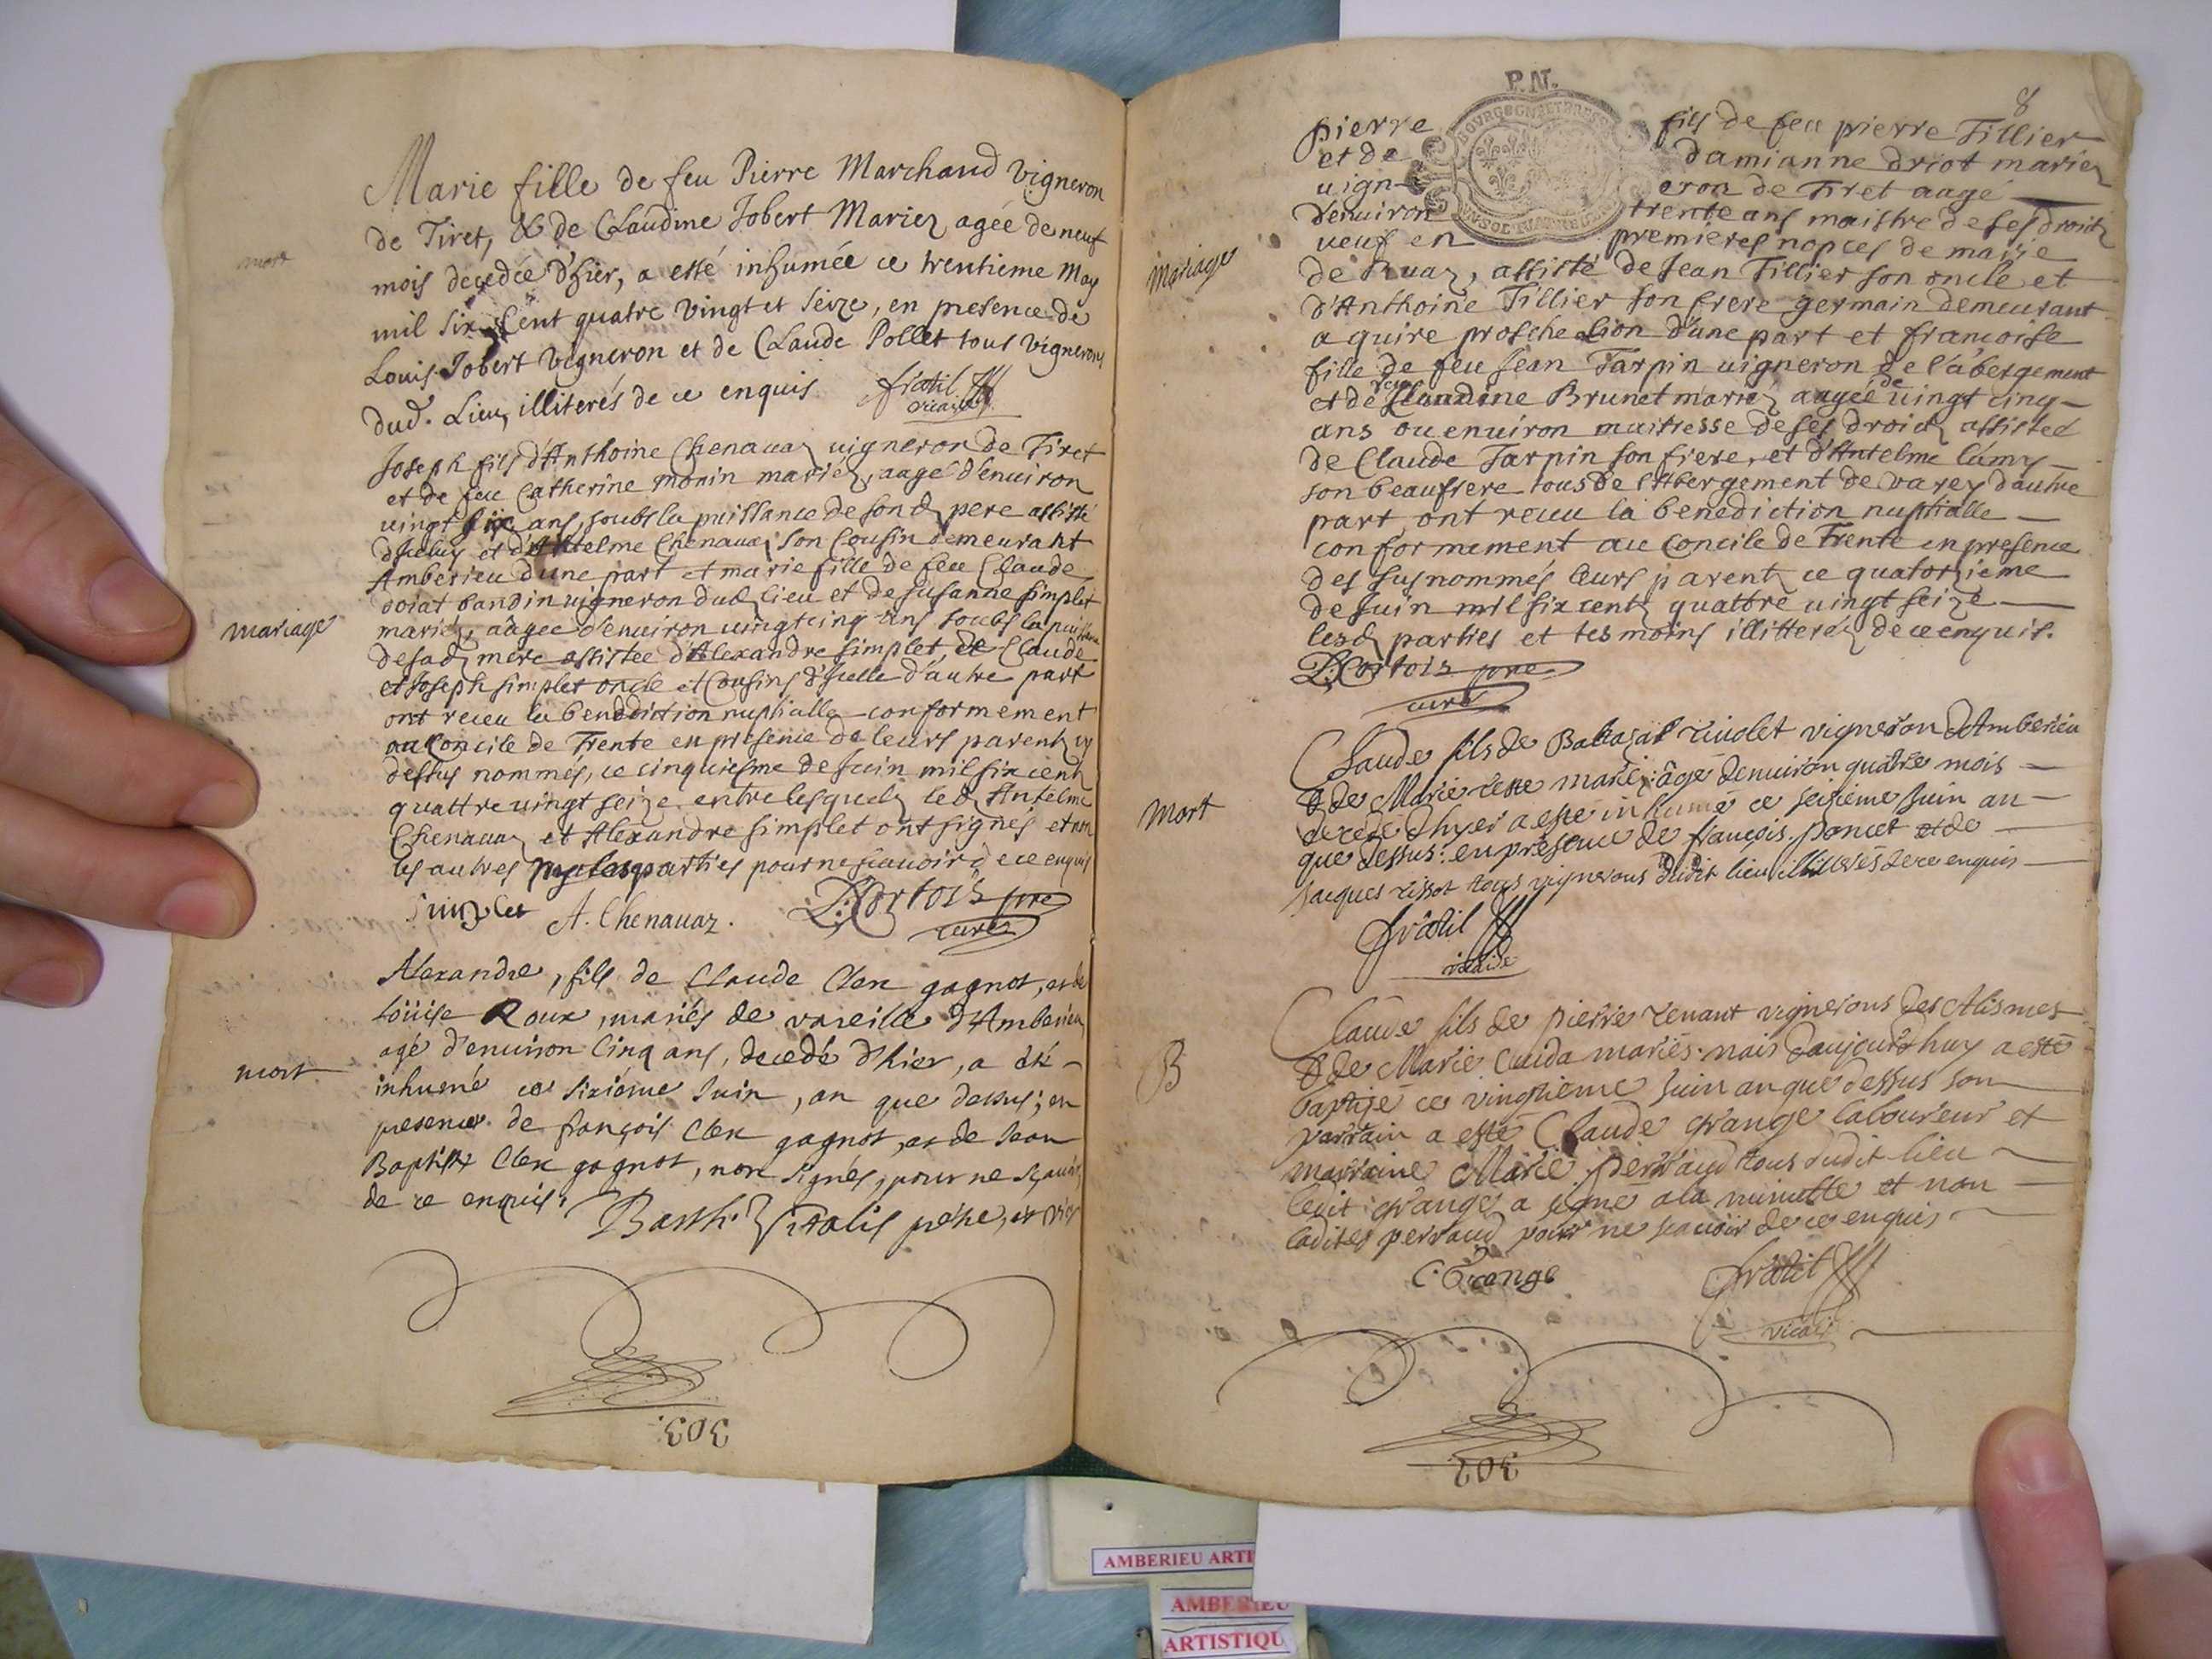 mort
Marie fille de feu Pierre Marchand vigneron
de Tiret, & de Claudine Jobert Mariez agée de neuf
mois decedée d'hier, a esté inhumée ce trentieme May
mil six Cent quatre vingt et seize, en presence de
Louis Jobert vigneron et de Claude Pollet tous vignerons
dud. Lieu, illiterés de ce enquis
vicaire
mariage
Joseph fils d'Anthoine Chenauaz uigneron de Tiret
et de feu Catherine monin mariez, aagé d'enuiron
uingt six ans, soubs la puissance de sond pere assisté
d'Iceluy et d'Antelme Chenauaz son Cousin demeurant
Amberieu d'une part et marie fille de feu Claude
bandin uigneron dud lieu et de susanne simplet
mariez, aagee d'enuiron uingt cinq ans soubs la puissance
de sad mere assistee d'Alexandre simplet, de Claude
et Joseph simplet oncle et Cousins d'Icelle d'autre part
ont receu la benediction nuptialle conformement
au Concile de Trente en presence de leurs parentz cy
dessus nommés, ce cinquiesme de Juin mil six centz
quattre uingt seize entre lesquelz led Antelme
Chenauaz et Alexandre simplet ont signés et non
les autres parties pour ne scauoir de ce enquis
Simplet A. Chenauaz. Cortois pre
curé
mort
Alexandre, fils de Claude Clerc gagnot, et de
Loüise Roux, mariés de vareille d'Amberieu
agé d'enuiron Cinq ans, decedé d'hier, a été
inhumé ce sixiéme Juin, an que dessus; en
presence de françois Clerc gagnot, et de Jean
Baptiste Clerc gagnot, non signés, pour ne sçauoir
de ce enquis.
Barth. Vitalis
303
P.N.
8
mariage
pierre fils de feu pierre Tillier
et de damianne driot mariez
uigneron de Tiret aagé
d'enuiron trente ans maistre de ses droictz
ueuf en premieres nopces de marie
de Ruaz, assisté de Jean Tillier son oncle et
d'Anthoine Tillier son frere germain demeurant
a quire prosche Lion d'une part et francoise
fille de feu Jean Tarpin uigneron de l'abergement
et de feu Claudine Brunet mariez aagée de uingt cinq
ans ou enuiron maitresse de ses droictz assistee
de Claude Tarpin son frere, et d'Antelme lamy
son beaufrere tous de l'Abergement de varey d'autre
part, ont receu la benediction nuptialle
conformement au Concile de Trente en presence
des susnommés leurs parentz ce quatorzieme
de Juin mil six centz quattre uingt seize
lesd parties et tesmoins illitterez de ce enquis.
Cortois pre
curé
Mort
Claude fils de Baltazar riuolet vigneron d'Amberieu
& de Marie mariez âgé denuiron quatre mois
decedé d'hyer a esté inhumé ce seizieme Juin an
que dessus: en presence de françois poncet et de
Jacques tissot tous vignerons dudit lieu illiterés de ce enquis
vicaire
B
Claude fils de pierre tenant vignerons des Alismes
& de Marie Cauda mariés nais d'aujourd'huy a esté
baptisé ce vingtieme Juin an que dessus son
parrain a esté Claude grange laboureur et
marraine Marie perraud tous dudit lieu
ledit grange a signé a la minutte et non
ladites perraud pour ne scauoir de ce enquis
C. Grange
vicaire
302
AMBERIEU ARTI
AMBERIEU
ARTISTIQU